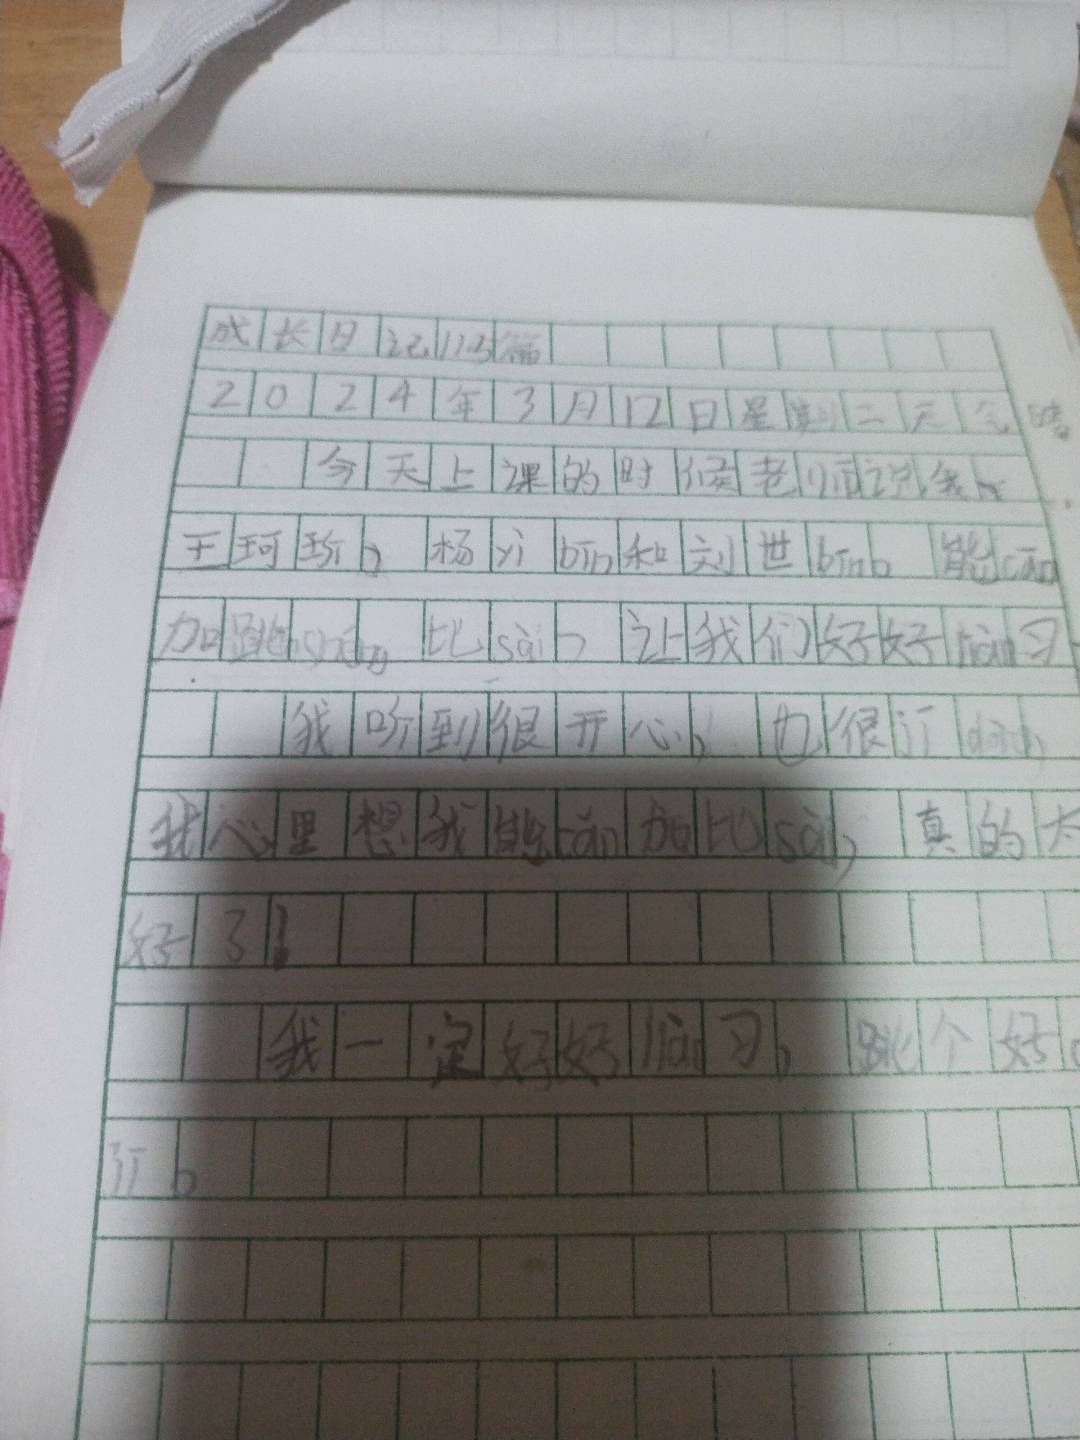 成长日记113篇
2024年3月12日星期二天气晴
今天上课的时候老师说我、
王珂珍、杨yì bīn和刘世bīn。能cān
加跳shéng比sài,让我们好好liàn习
我听到很开心,也很
我心里想我能cān加比sài,真的太
好了!
我一定好好liàn习,跳个好